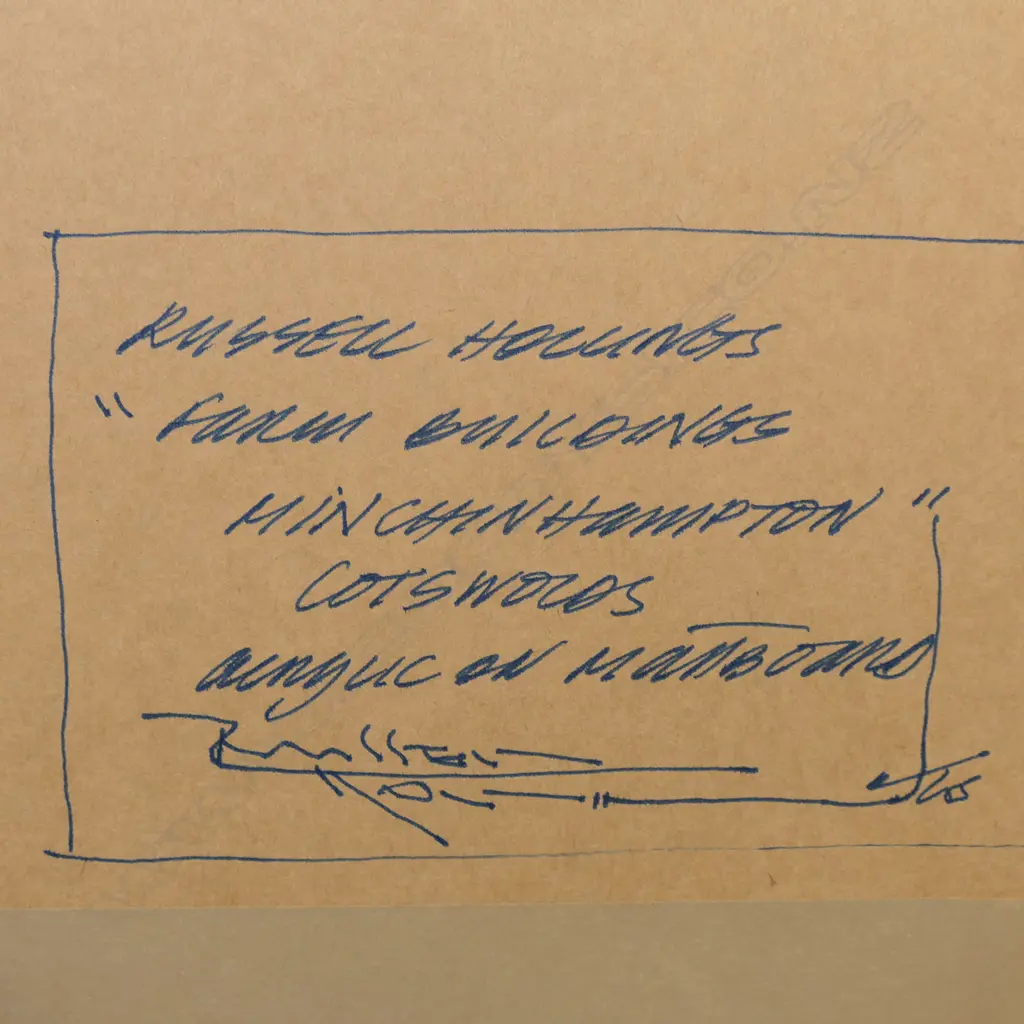 RUSSELL HOLLINGS
"FARM BUILDINGS
MINCHINHAMPTON"
COTSWOLDS
ACRYLIC ON MATTBOARD
Russell